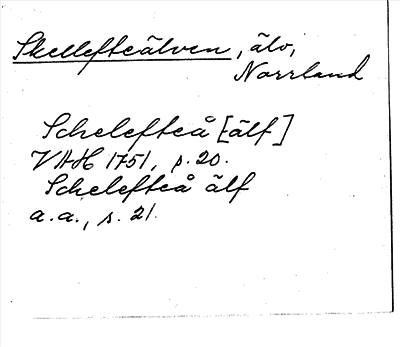 Skellefteälven, älv,
Norrland
Schelefteå [älf]
VAH 1751, p. 20.
Schelefteå älf
a. a., s. 21.